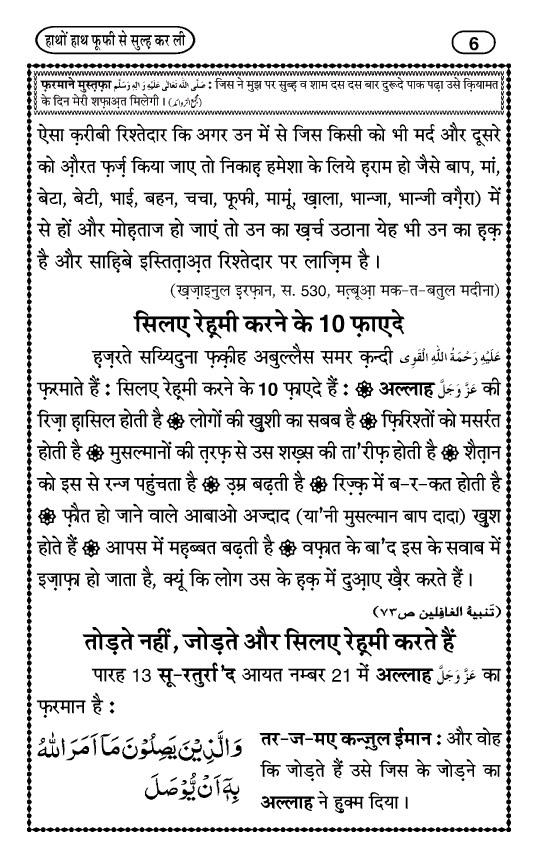 हाथों हाथ फूफी से सुल्ह़ कर ली
6
फ़रमाने मुस्त़फ़ा صَلَّى اللهُ تَعَالٰى عَلَيْهِ وَاٰلِهٖ وَسَلَّم : जिस ने मुझ पर सुब्ह़ व शाम दस दस बार दुरूदे पाक पढ़ा उसे क़ियामत
के दिन मेरी शफ़ाअ़त मिलेगी । (مجمع الزوائد)
ऐसा क़रीबी रिश्तेदार कि अगर उन में से जिस किसी को भी मर्द और दूसरे
को औ़रत फ़र्ज़ किया जाए तो निकाह़ हमेशा के लिये ह़राम हो जैसे बाप, मां,
बेटा, बेटी, भाई, बहन, चचा, फूफी, मामूं, ख़ाला, भान्जा, भान्जी वग़ैरा) में
से हों और मोह़ताज हो जाएं तो उन का ख़र्च उठाना येह भी उन का ह़क़
है और साह़िबे इस्तित़ाअ़त रिश्तेदार पर लाज़िम है ।
(ख़ज़ाइनुल इरफ़ान, स. 530, मत़्बूआ़ मक-त-बतुल मदीना)
सिलए रेह़्मी करने के 10 फ़ाएदे
ह़ज़रते सय्यिदुना फ़क़ीह अबुल्लैस समर क़न्दी عَلَيْهِ رَحْمَةُ اللهِ الْقَوِى
फ़रमाते हैं : सिलए रेह़्मी करने के 10 फ़ाएदे हैं : ❁ अल्लाह عَزَّ وَجَلَّ की
रिज़ा ह़ासिल होती है ❁ लोगों की ख़ुशी का सबब है ❁ फ़िरिश्तों को मसर्रत
होती है ❁ मुसल्मानों की त़रफ़ से उस शख़्स की ता'रीफ़ होती है ❁ शैत़ान
को इस से रन्ज पहुंचता है ❁ उ़म्र बढ़ती है ❁ रिज़्क़ में ब-र-कत होती है
❁ फ़ौत हो जाने वाले आबाओ अज्दाद (या'नी मुसल्मान बाप दादा) ख़ुश
होते हैं ❁ आपस में महब्बत बढ़ती है ❁ वफ़ात के बा'द इस के सवाब में
इज़ाफ़ा हो जाता है, क्यूं कि लोग उस के ह़क़ में दुआ़ए ख़ैर करते हैं ।
(تَنبِيهُ الغافِلين ص٧٣)
तोड़ते नहीं, जोड़ते और सिलए रेह़्मी करते हैं
पारह 13 सू-रतुर्रा'द आयत नम्बर 21 में अल्लाह عَزَّ وَجَلَّ का
फ़रमान है :
وَالَّذِیْنَ یَصِلُوْنَ مَاۤ اَمَرَ اللّٰهُ
بِهٖۤ اَنْ یُّوْصَلَ
तर-ज-मए कन्ज़ुल ईमान : और वोह
कि जोड़ते हैं उसे जिस के जोड़ने का
अल्लाह ने हुक्म दिया ।